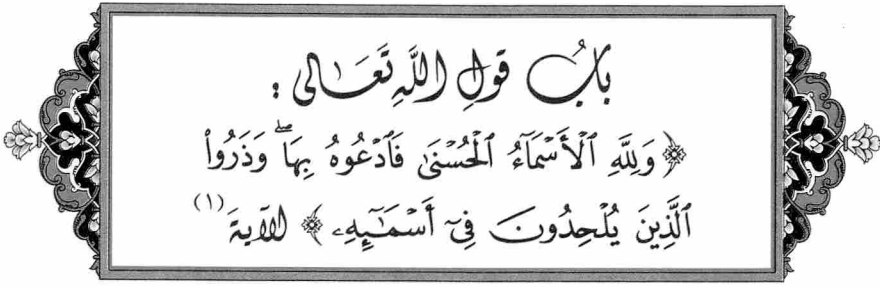 بَابُ قَوْلِ اللَّهِ تَعَالَى :
﴿ وَلِلَّهِ ٱلْأَسْمَآءُ ٱلْحُسْنَىٰ فَٱدْعُوهُ بِهَاۖ وَذَرُوا۟
ٱلَّذِينَ يُلْحِدُونَ فِىٓ أَسْمَـٰٓئِهِۦ ﴾ الآيَةَ (١)